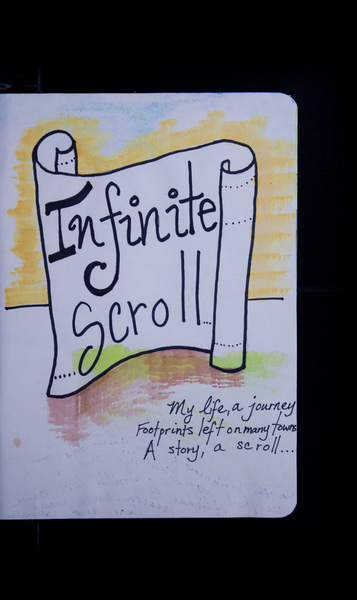 Infinite
Scroll...
My life, a journey
Footprints left on many towns
A story, a scroll...